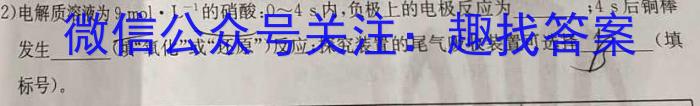 2)电解质溶液为9 mol·L⁻¹的硝酸:0~4 s内,负极上的电极反应为 ;4 s后铜棒
微信公众号关注：趣找答案
发生 (填"氧化"或"还原")反应;探究装置的尾气 装置可选择 (填
标号)。